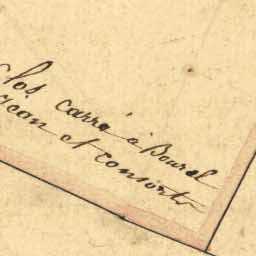 Clos carré à Bourel
Jean et consorts